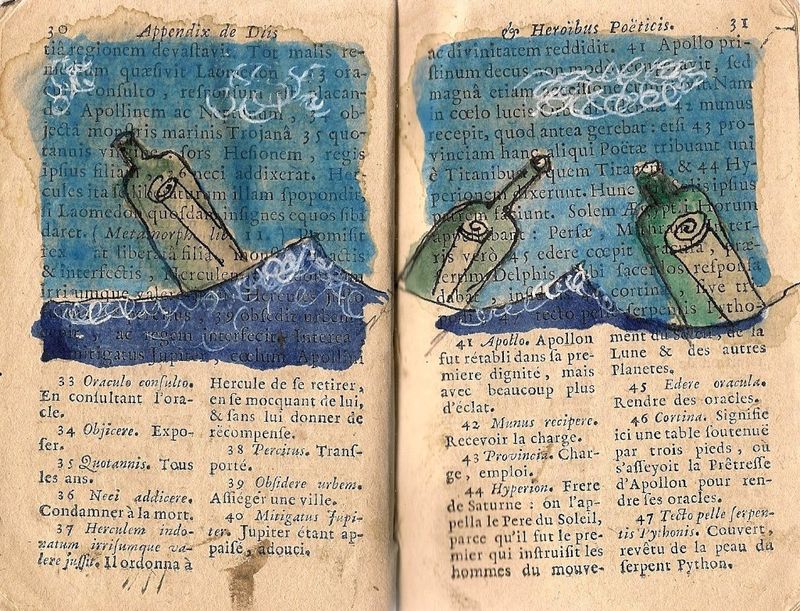 30 Appendix de Diis
tiâ regionem devastavit. Tot malis re-
quæsivit Laomedon 33 ora-
consulto, responsum
Apollinem ac
jecta monstris marinis Trojanâ 35 quo-
tannis sors Hesionem, regis
ipsius filia 36 neci addixerat. Her-
cules spopondit,
si Laomedon quosdam insignes equos sibi
daret. (Metamorph. lib. 11.) Promisit
rex at liberata filia
& interfectis, Herculem
irrisumque
39 obsedit urbem
ac regem interfecit. Interea
mitigatus Jupiter, cœlum Apollini
33 Oraculo consulto.
En consultant l'ora-
cle.
34 Objicere. Expo-
ser.
35 Quotannis. Tous
les ans.
36 Neci addicere.
Condamner à la mort.
37 Herculem indo-
natum irrisumque va-
lere jussit. Il ordonna à
Hercule de se retirer,
en se mocquant de lui,
& sans lui donner de
récompense.
38 Percitus. Trans-
porté.
39 Obsidere urbem.
Assiéger une ville.
40 Mitigatus Jupi-
ter. Jupiter étant ap-
paisé, adouci.
& Heroïbus Poëticis. 31
ac divinitatem reddidit. 41 Apollo pri-
stinum decus non modo recuperavit, sed
magnâ etiam accessione Nam
in cœlo lucis 42 munus
recepit, quod antea gerebat: etsi 43 pro-
vinciam hanc aliqui Poëtæ tribuunt uni
è Titanibus, quem Titanem, & 44 Hy-
perionem dixerunt. Hunc ipsius
patrem faciunt. Solem Ægyptii Horum
appellabant: Persæ Mithram
ris verò 45 edere cœpit oracula, præ-
sertim Delphis, ubi sacerdos responsa
dabat, cortina, sive tri-
tecto pelle serpentis Pytho-
41 Apollo. Apollon
fut rétabli dans sa pre-
miere dignité, mais
avec beaucoup plus
d'éclat.
42 Munus recipere.
Recevoir la charge.
43 Provincia. Char-
ge, emploi.
44 Hyperion. Frere
de Saturne : on l'ap-
pella le Pere du Soleil,
parce qu'il fut le pre-
mier qui instruisit les
hommes du mouve-
ment du soleil, de la
Lune & des autres
Planetes.
45 Edere oracula.
Rendre des oracles.
46 Cortina. Signifie
ici une table soutenuë
par trois pieds, où
s'asseyoit la Prêtresse
d'Apollon pour ren-
dre ses oracles.
47 Tecto pelle serpen-
tis Pythonis. Couvert,
revêtu de la peau du
serpent Python.